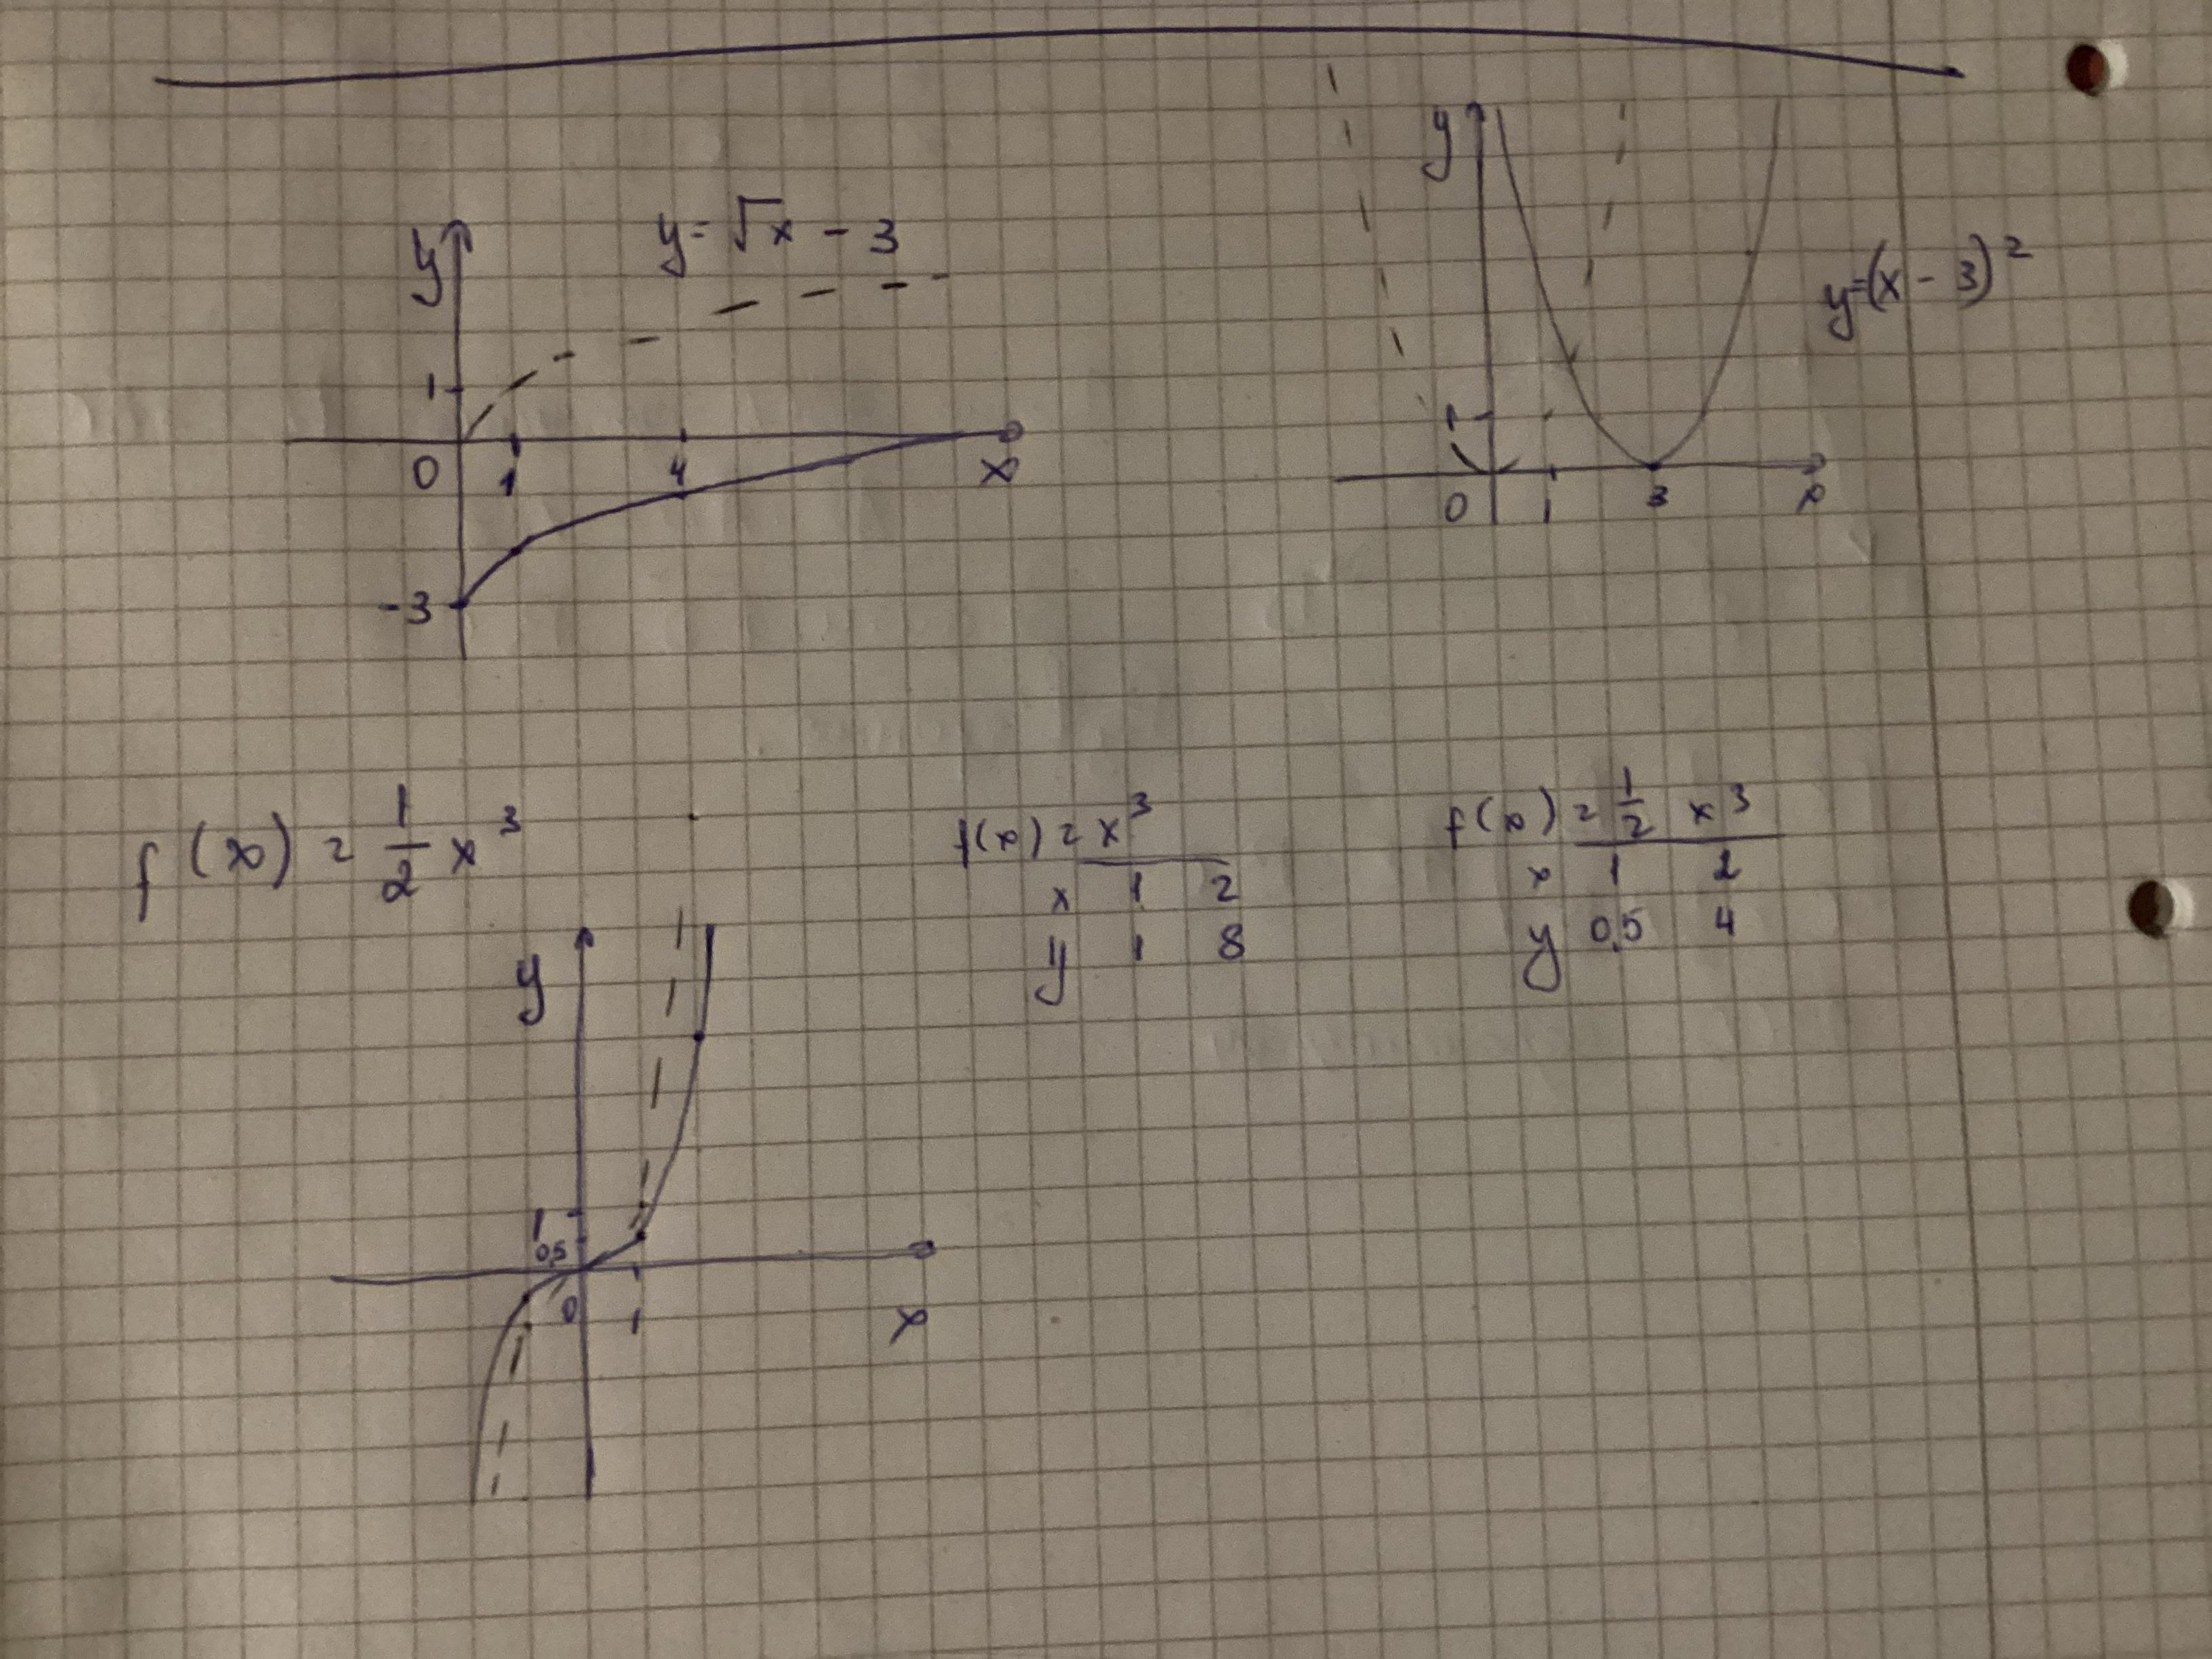 y
y = √x - 3
1
0
1
4
x
-3
y
y = (x - 3)²
1
0
1
3
x
f(x) = 1/2 x³
f(x) = x³
x 1 2
y 1 8
f(x) = 1/2 x³
x 1 2
y 0,5 4
y
1
0,5
0
1
x